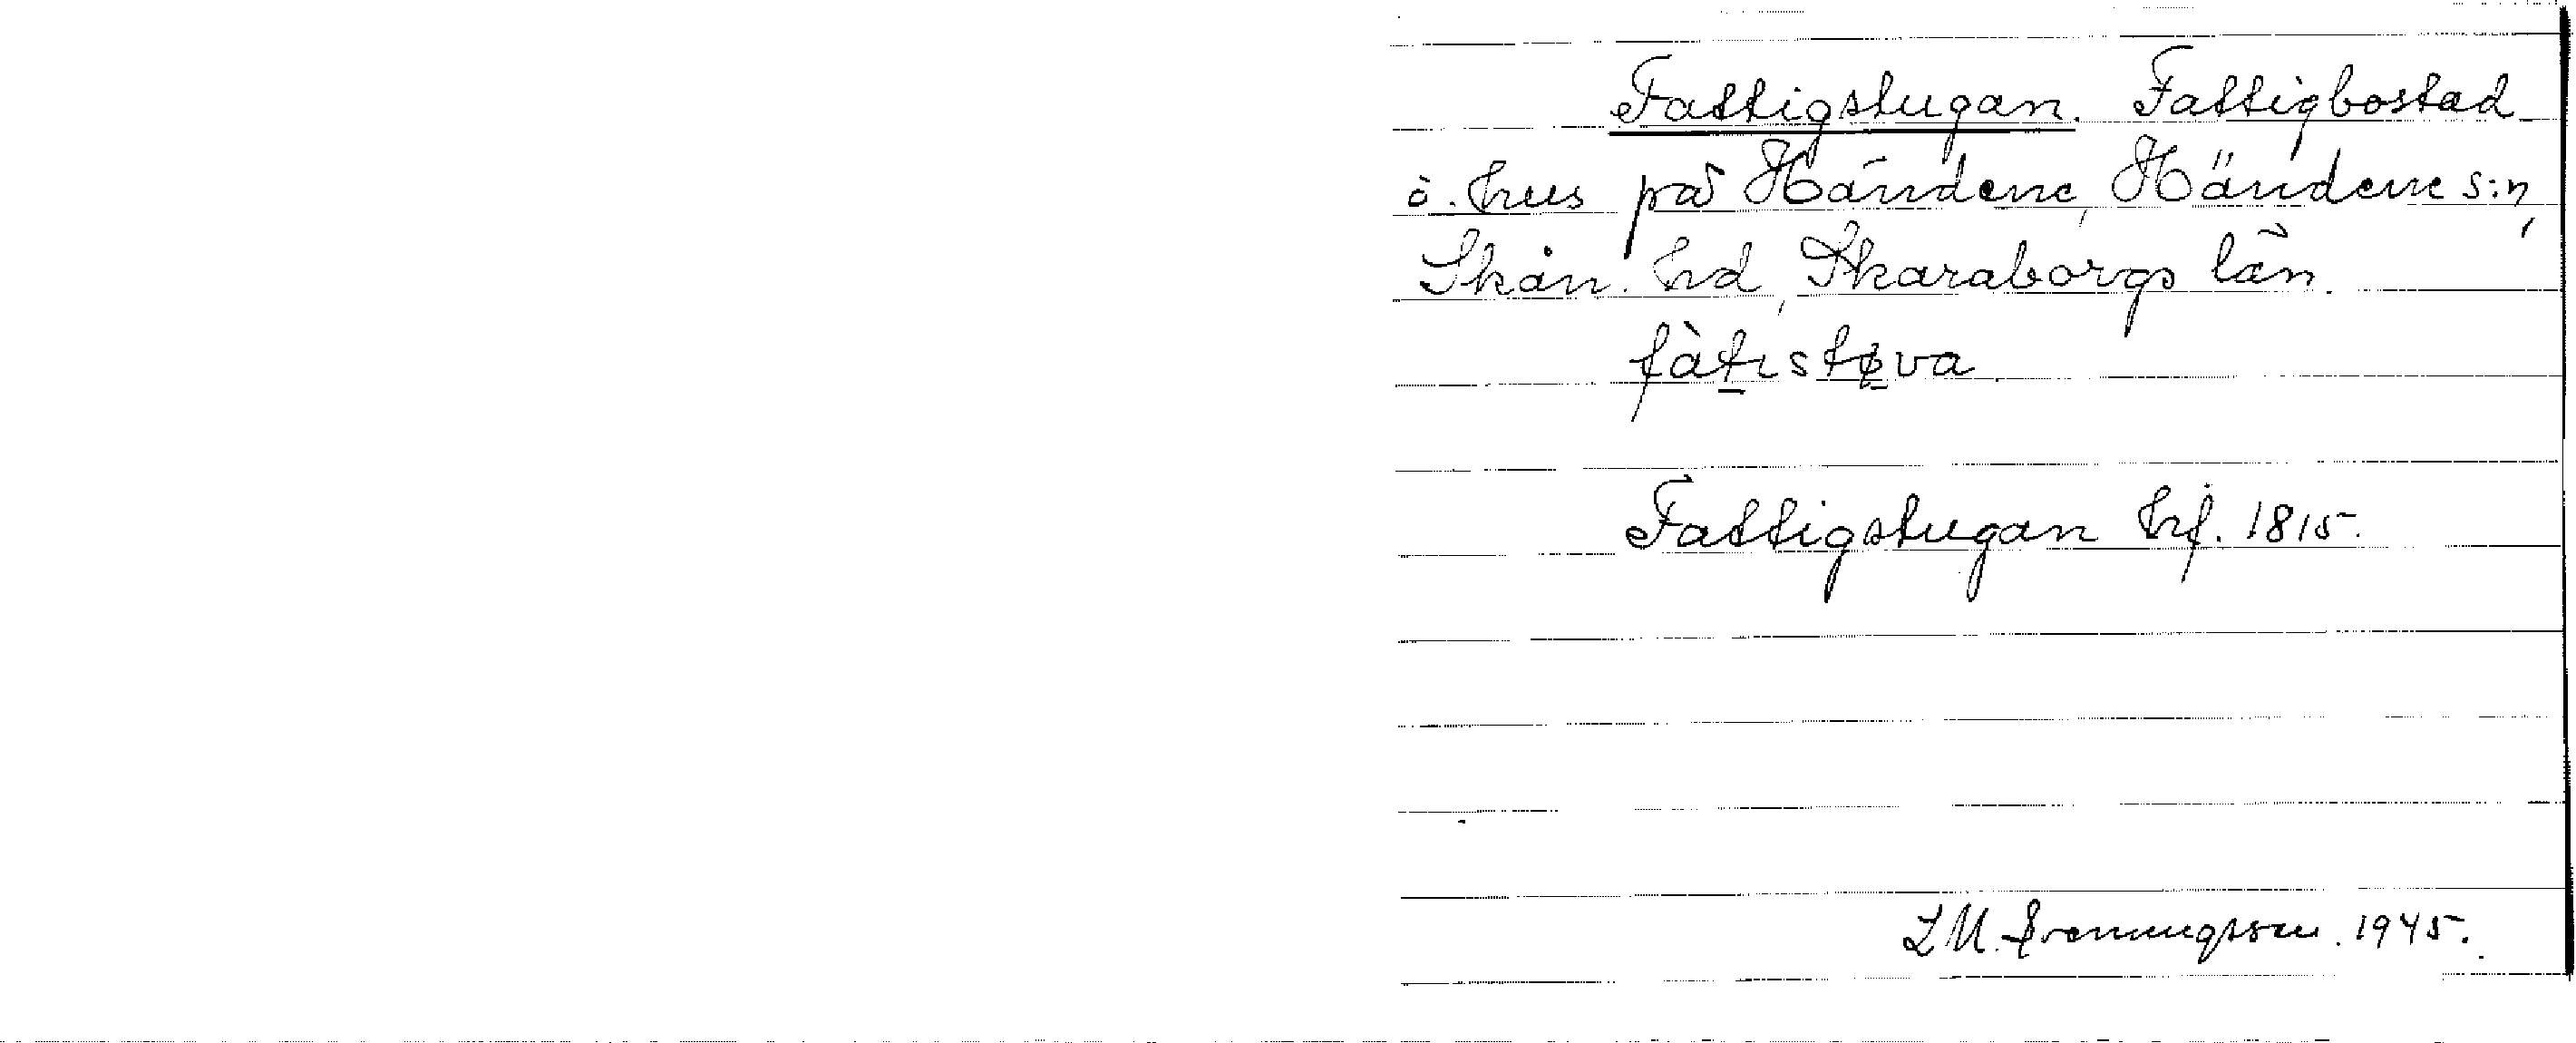 Fattigstugan. Fattigbostad
ö. hus på Händene, Händene s:n,
Skån. hd, Skaraborgs län.
fàtɩstøva
Fattigstugan hf. 1815.
1945.